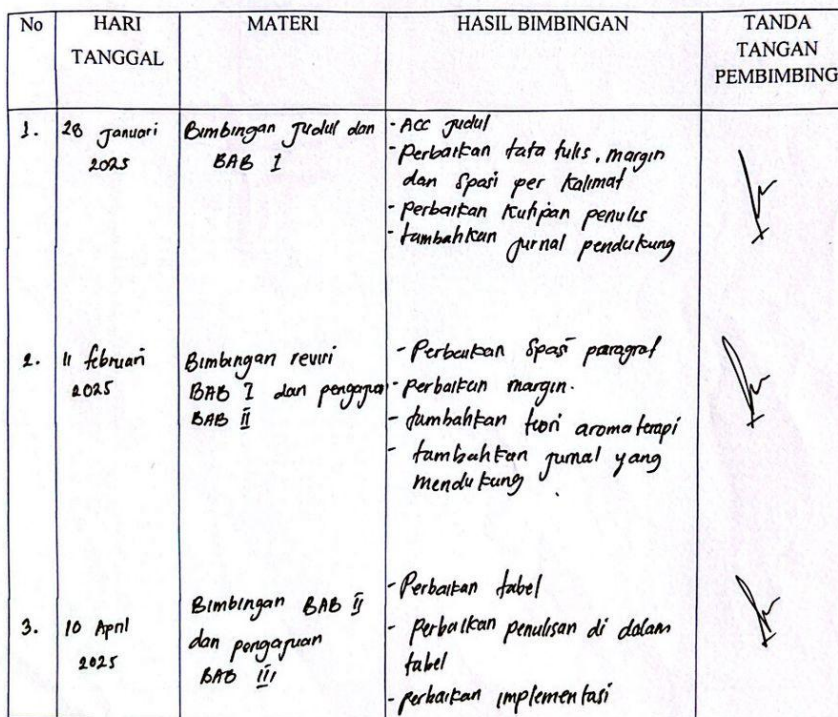 No HARI TANGGAL MATERI HASIL BIMBINGAN TANDA TANGAN PEMBIMBING
1. 28 Januari 2025
Bimbingan Judul dan
BAB I
- ACC judul
- Perbaikan tata tulis, margin
dan spasi per kalimat
- perbaikan kutipan penulis
- tambahkan jurnal pendukung
2. 11 februari 2025
Bimbingan revisi
BAB I dan pengajuan
BAB II
- Perbaikan spasi paragraf
- perbaikan margin.
- tambahkan teori aromaterapi
- tambahkan jurnal yang
mendukung
3. 10 April 2025
Bimbingan BAB II
dan pengajuan
BAB III
- Perbaikan tabel
- perbaikan penulisan di dalam
tabel
- perbaikan implementasi